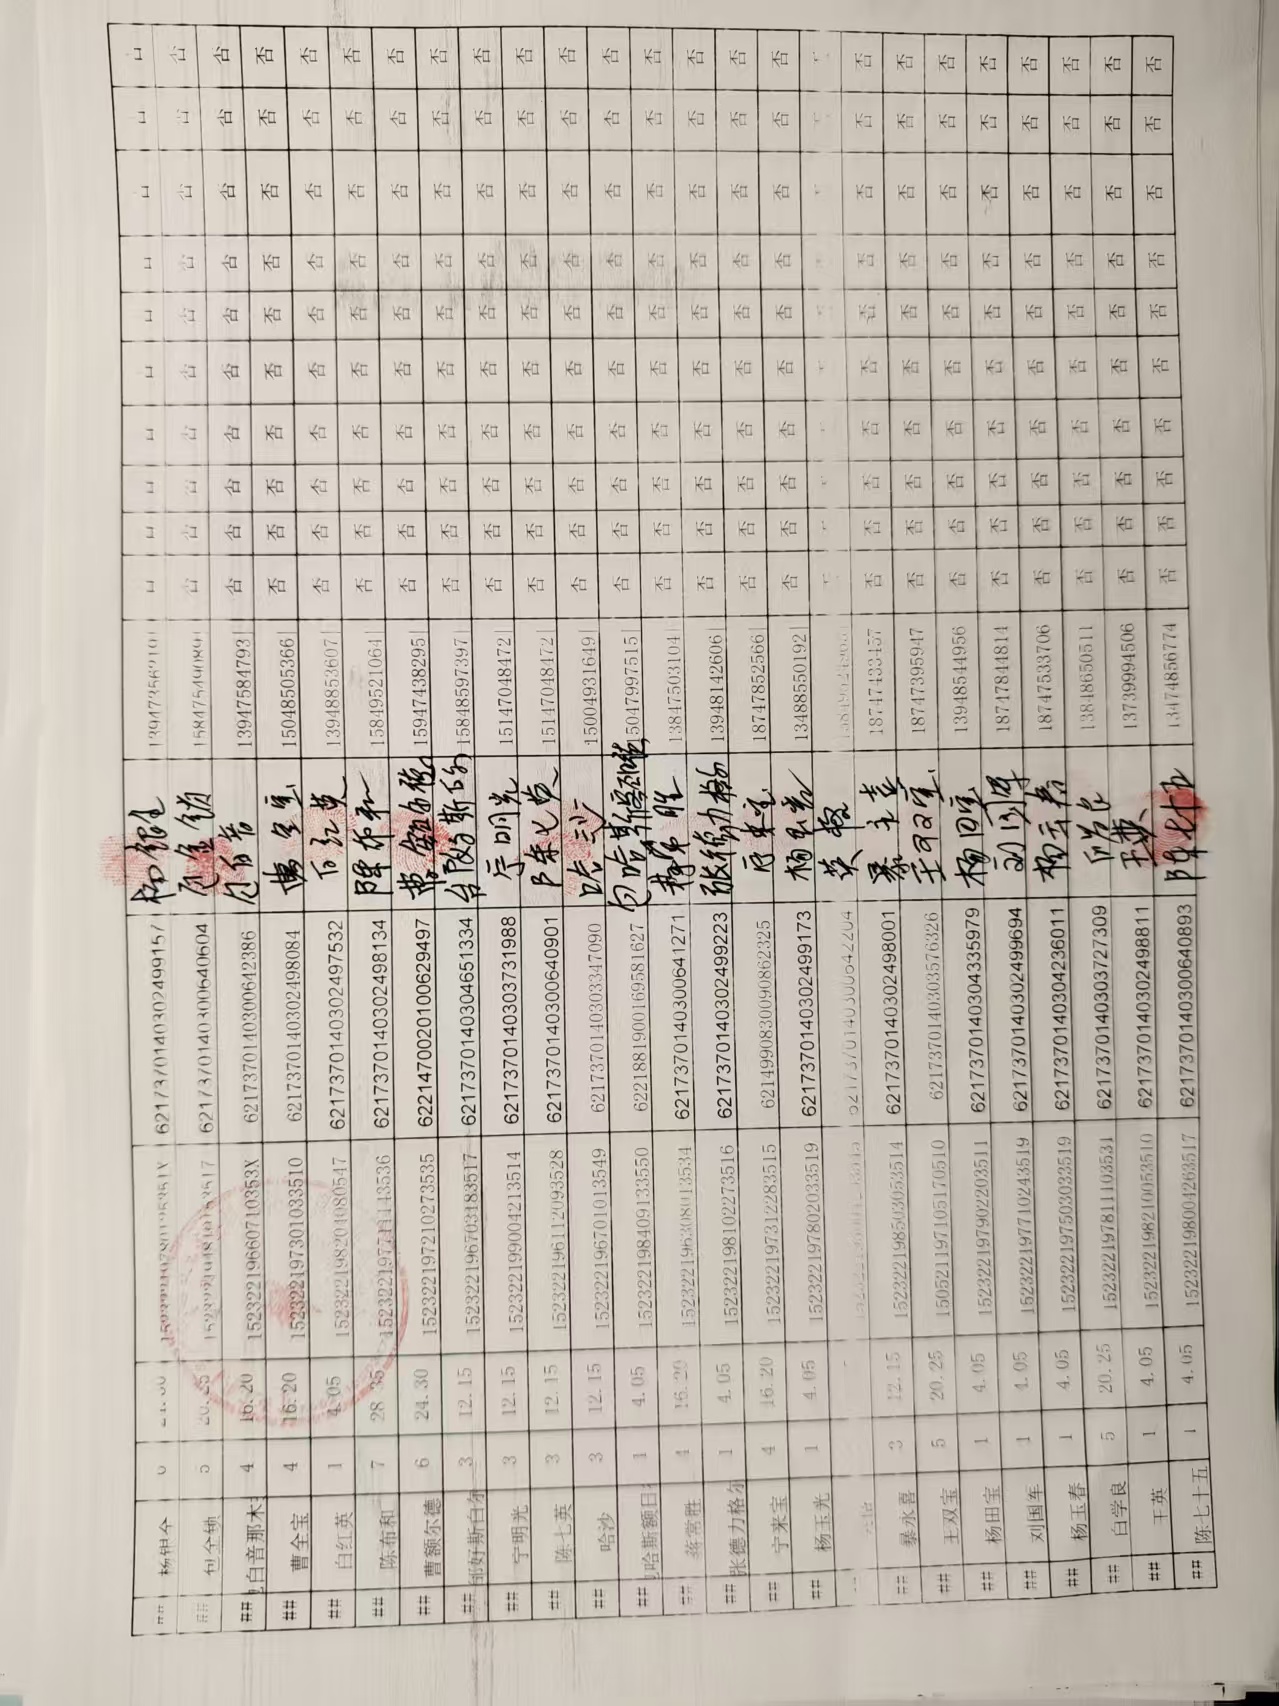 ## 6217370140302499157
## 包全锁 5 20.25 6217370140300640604 包金锁 15847549089
## 白音那木 4 16.20 15232219660710353X 6217370140300642386 包白音 13947584793 否 否 否 否 否 否 否 否 否 否
## 曹全宝 4 16.20 152322197301033510 6217370140302498084 15048505366 否 否 否 否 否 否 否 否 否 否
## 白红英 1 4.05 152322198201080547 6217370140302497532 白红英 13948853607 否 否 否 否 否 否 否 否 否 否
## 陈布和 7 28.35 6217370140302498134 陈布和 15849521064 否 否 否 否 否 否 否 否 否 否
## 曹额尔德 6 24.30 152322197210273535 6221470020100629497 15947438295 否 否 否 否 否 否 否 否 否 否
## 3 12.15 152322196703183517 6217370140304651334 15848597397 否 否 否 否 否 否 否 否 否 否
## 宁明光 3 12.15 152322199004213514 6217370140303731988 宁明光 15147048472 否 否 否 否 否 否 否 否 否 否
## 陈七英 3 12.15 152322196112093528 6217370140300640901 陈七英 15147048472 否 否 否 否 否 否 否 否 否 否
## 哈沙 3 12.15 152322196701013349 6217370140303347090 哈沙 15004931649 否 否 否 否 否 否 否 否 否 否
## 哈斯额日 1 4.05 152322198409133550 6221881900169581627 15047997515 否 否 否 否 否 否 否 否 否 否
## 蒋常胜 4 16.20 152322196308013534 6217370140300641271 13847503104 否 否 否 否 否 否 否 否 否 否
## 张德力格尔 1 4.05 152322198102273516 6217370140302499223 张德力格尔 13948142606 否 否 否 否 否 否 否 否 否 否
## 宁来宝 4 16.20 152322197312283515 6214990830090862325 宁来宝 18747852566 否 否 否 否 否 否 否 否 否 否
## 杨玉光 1 4.05 152322197802033519 6217370140302499173 杨玉光 13488550192 否 否 否 否 否 否 否 否 否 否
6217370140300642204
## 暴永喜 3 12.15 152322198503053514 6217370140302498001 暴永喜 18747433457 否 否 否 否 否 否 否 否 否 否
## 王双宝 5 20.25 150521197105170510 6217370140303576326 王双宝 18747395947 否 否 否 否 否 否 否 否 否 否
## 杨田宝 1 4.05 152322197902203511 6217370140304335979 杨田宝 13948544956 否 否 否 否 否 否 否 否 否 否
## 刘国军 1 4.05 152322197710243519 6217370140302499694 刘国军 18747844814 否 否 否 否 否 否 否 否 否 否
## 杨玉春 1 4.05 152322197503033519 6217370140304236011 杨玉春 18747533706 否 否 否 否 否 否 否 否 否 否
## 白学良 5 20.25 152322197811103531 6217370140303727309 13848650511 否 否 否 否 否 否 否 否 否 否
## 王英 1 4.05 152322198210053510 6217370140302498811 王英 13739994506 否 否 否 否 否 否 否 否 否 否
## 陈七十五 1 4.05 152322198004263517 6217370140300640893 陈七十五 13474856774 否 否 否 否 否 否 否 否 否 否